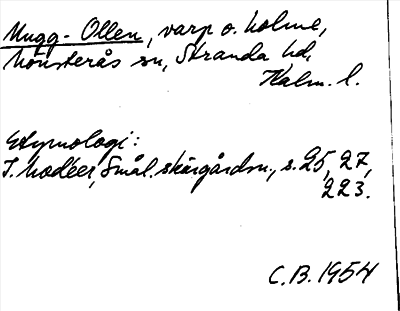 Mugg-Ollen, varp o. holme,
Mönsterås sn, Stranda hd,
Kalm. l.
Etymologi:
I. Modéer, Smål. skärgårdsn., s. 25, 27,
223.
C.B. 1954